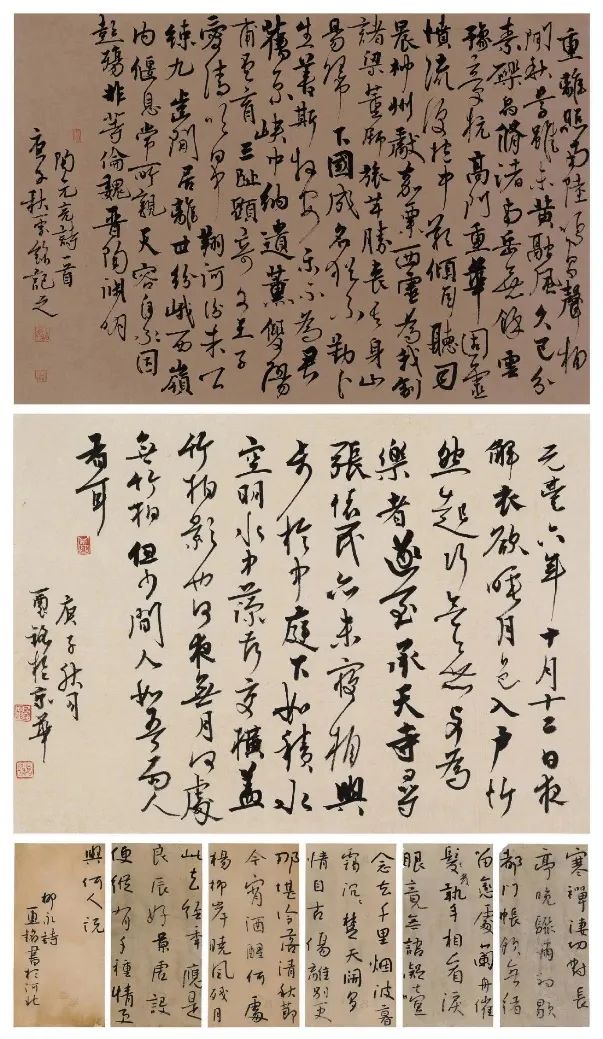 重離照南陸鳴鳥聲相
聞秋草雖未黃融風久已分
素礫皛脩渚南岳無餘雲
豫章抗高門重華固靈
墳流淚抱中歎傾耳聽司
晨神州獻嘉粟西靈為我馴
諸梁董師旅芊勝喪其身山
陽歸下國成名猶不勤卜
生善斯牧安樂不為君
舊京峽中納遺薰雙陽
甫云育三趾顯奇文王子
愛清吹日中翔河汾朱公
練九齒閒居離世紛峨峨西嶺
內偃息常所親天容自永固
彭殤非等倫魏晉陶淵明
陶元亮詩一首
庚子秋錄記之
元豐六年十月十二日夜
解衣欲睡月色入戶忻
然起行念無與為
樂者遂至承天寺尋
張懷民亦未寢相與
步於中庭下如積水
空明水中藻荇交橫蓋
竹柏影也何夜無月何處
無竹柏但少閒人如吾兩人
者耳
庚子秋月
於京華
寒蟬淒切對長
亭晚驟雨初歇
都門帳飲無緒
留戀處蘭舟催
發執手相看淚
眼竟無語凝噎
念去千里烟波暮
靄沉沉楚天闊多
情自古傷離別更
那堪冷落清秋節
今宵酒醒何處
楊柳岸曉風殘月
此去經年應是
良辰好景虛設
便縱有千種情更
與何人說
柳永詩
書於河北